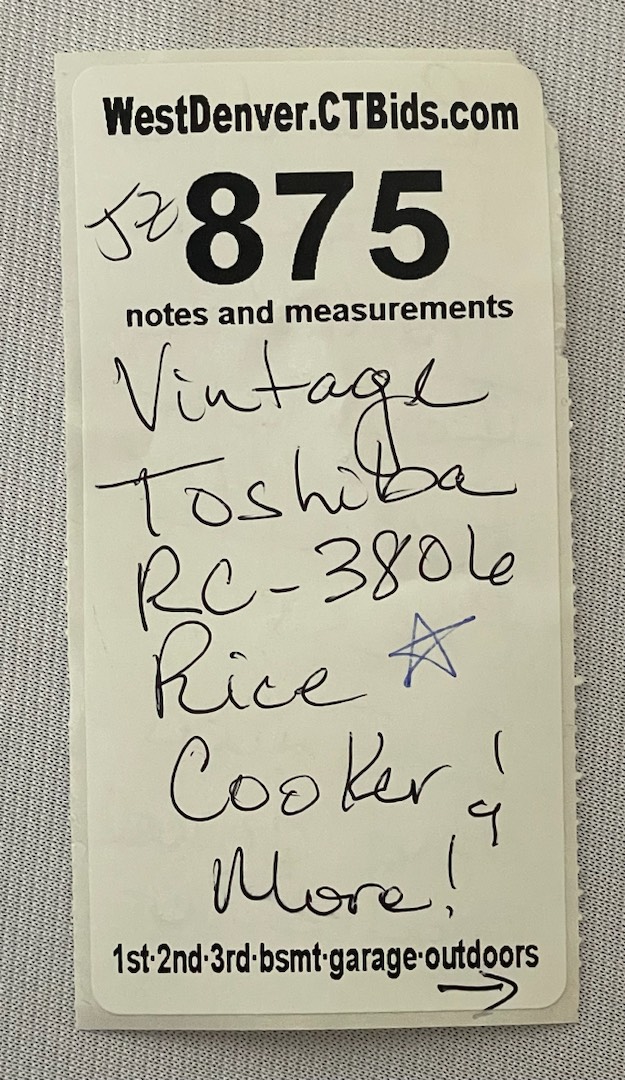 WestDenver.CTBids.com
JZ 875
notes and measurements
Vintage
Toshiba
RC-3806
Rice
Cooker &
More!
1st·2nd·3rd·bsmt·garage·outdoors